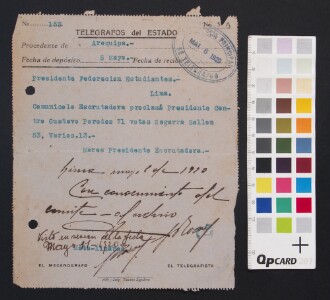 No. 153
TELEGRAFOS del ESTADO
Procedente de Arequipa.-
Fecha de depósito 5 Mayo.- Fecha de recibo
MAY 6
Presidente Federacion Estudiantes.-
Lima.
Comunicale Escrutadora proclamó Presidente Cen-
tro Gustavo Paredes 71 votas Zegarra Ballon
63, Varios.13.-
Presidente Escrutadora.-
Lima, mayo 6 de 1920
Con conocimiento del
comité archivo
Visto en sesion de la fecha
EL MECANOGRAFO
EL TELEGRAFISTA
QPCARD